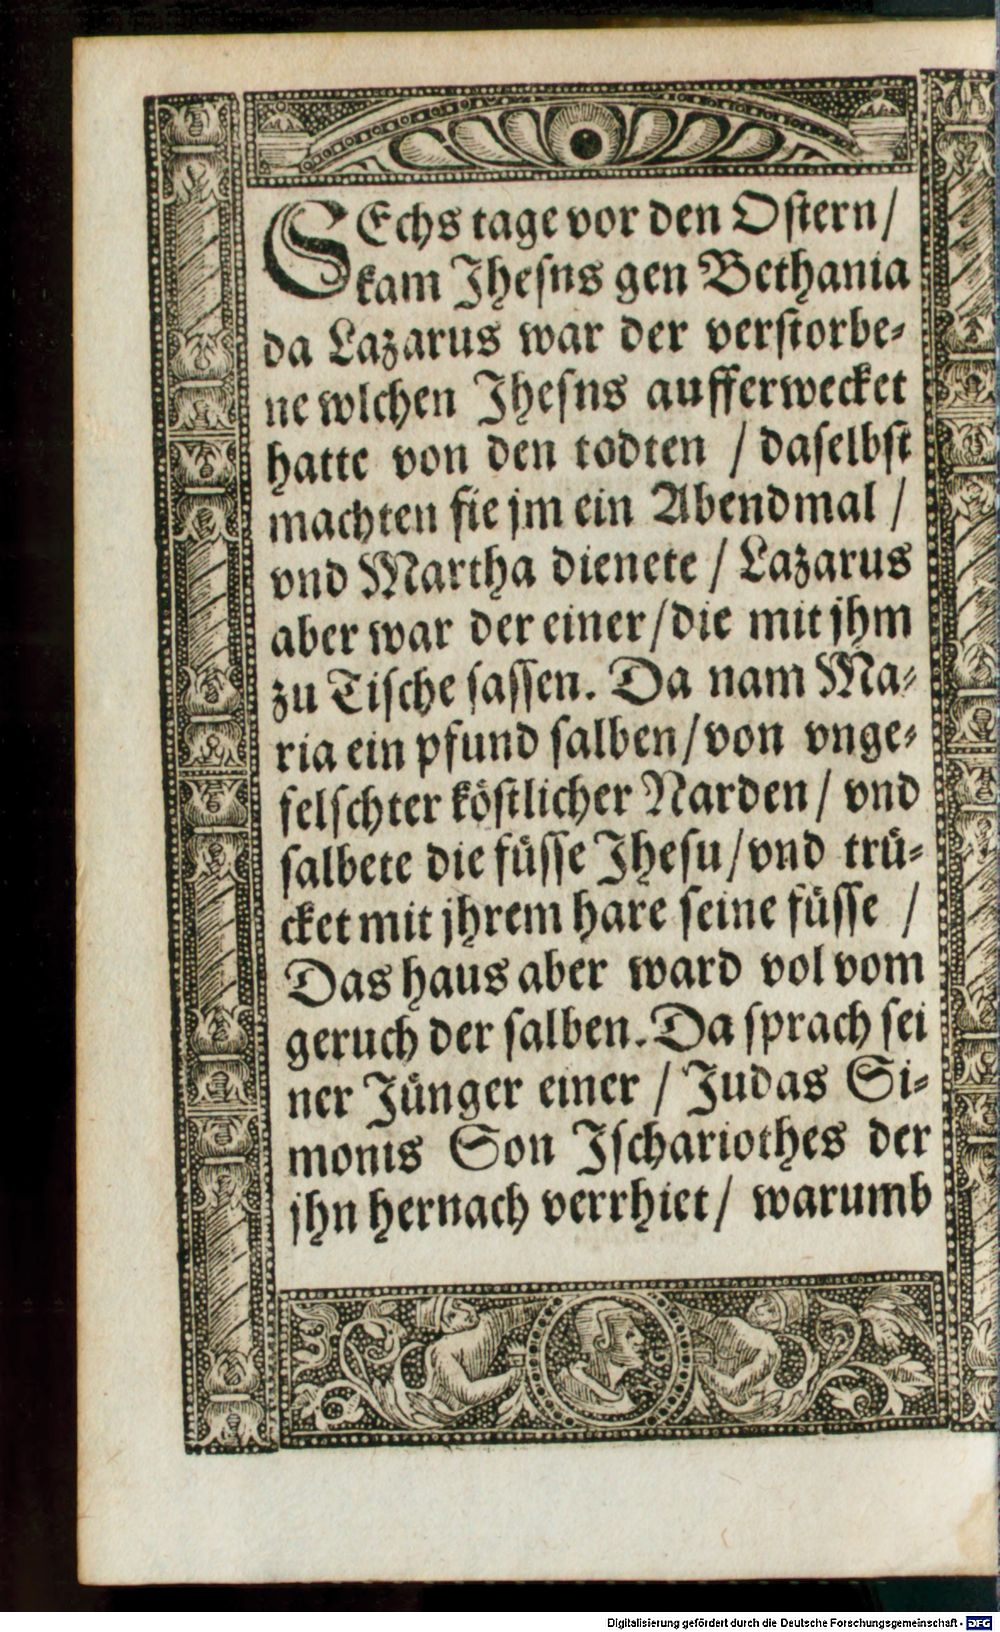 SEchs tage vor den Ostern/
kam Jhesns gen Bethania
da Lazarus war der verstorbe⸗
ne wlchen Jhesns aufferwecket
hatte von den todten / daselbst
machten sie jm ein Abendmal /
vnd Martha dienete / Lazarus
aber war der einer/die mit jhm
zu Tische sassen. Da nam Ma⸗
ria ein pfund salben/von vnge⸗
felschter köstlicher Narden / vnd
salbete die füsse Jhesu/vnd trü⸗
cket mit jhrem hare seine füsse /
Das haus aber ward vol vom
geruch der salben. Da sprach sei
ner Jünger einer / Judas Si⸗
monis Son Jschariothes der
jhn hernach verrhiet/ warumb
Digitalisierung gefördert durch die Deutsche Forschungsgemeinschaft - DFG